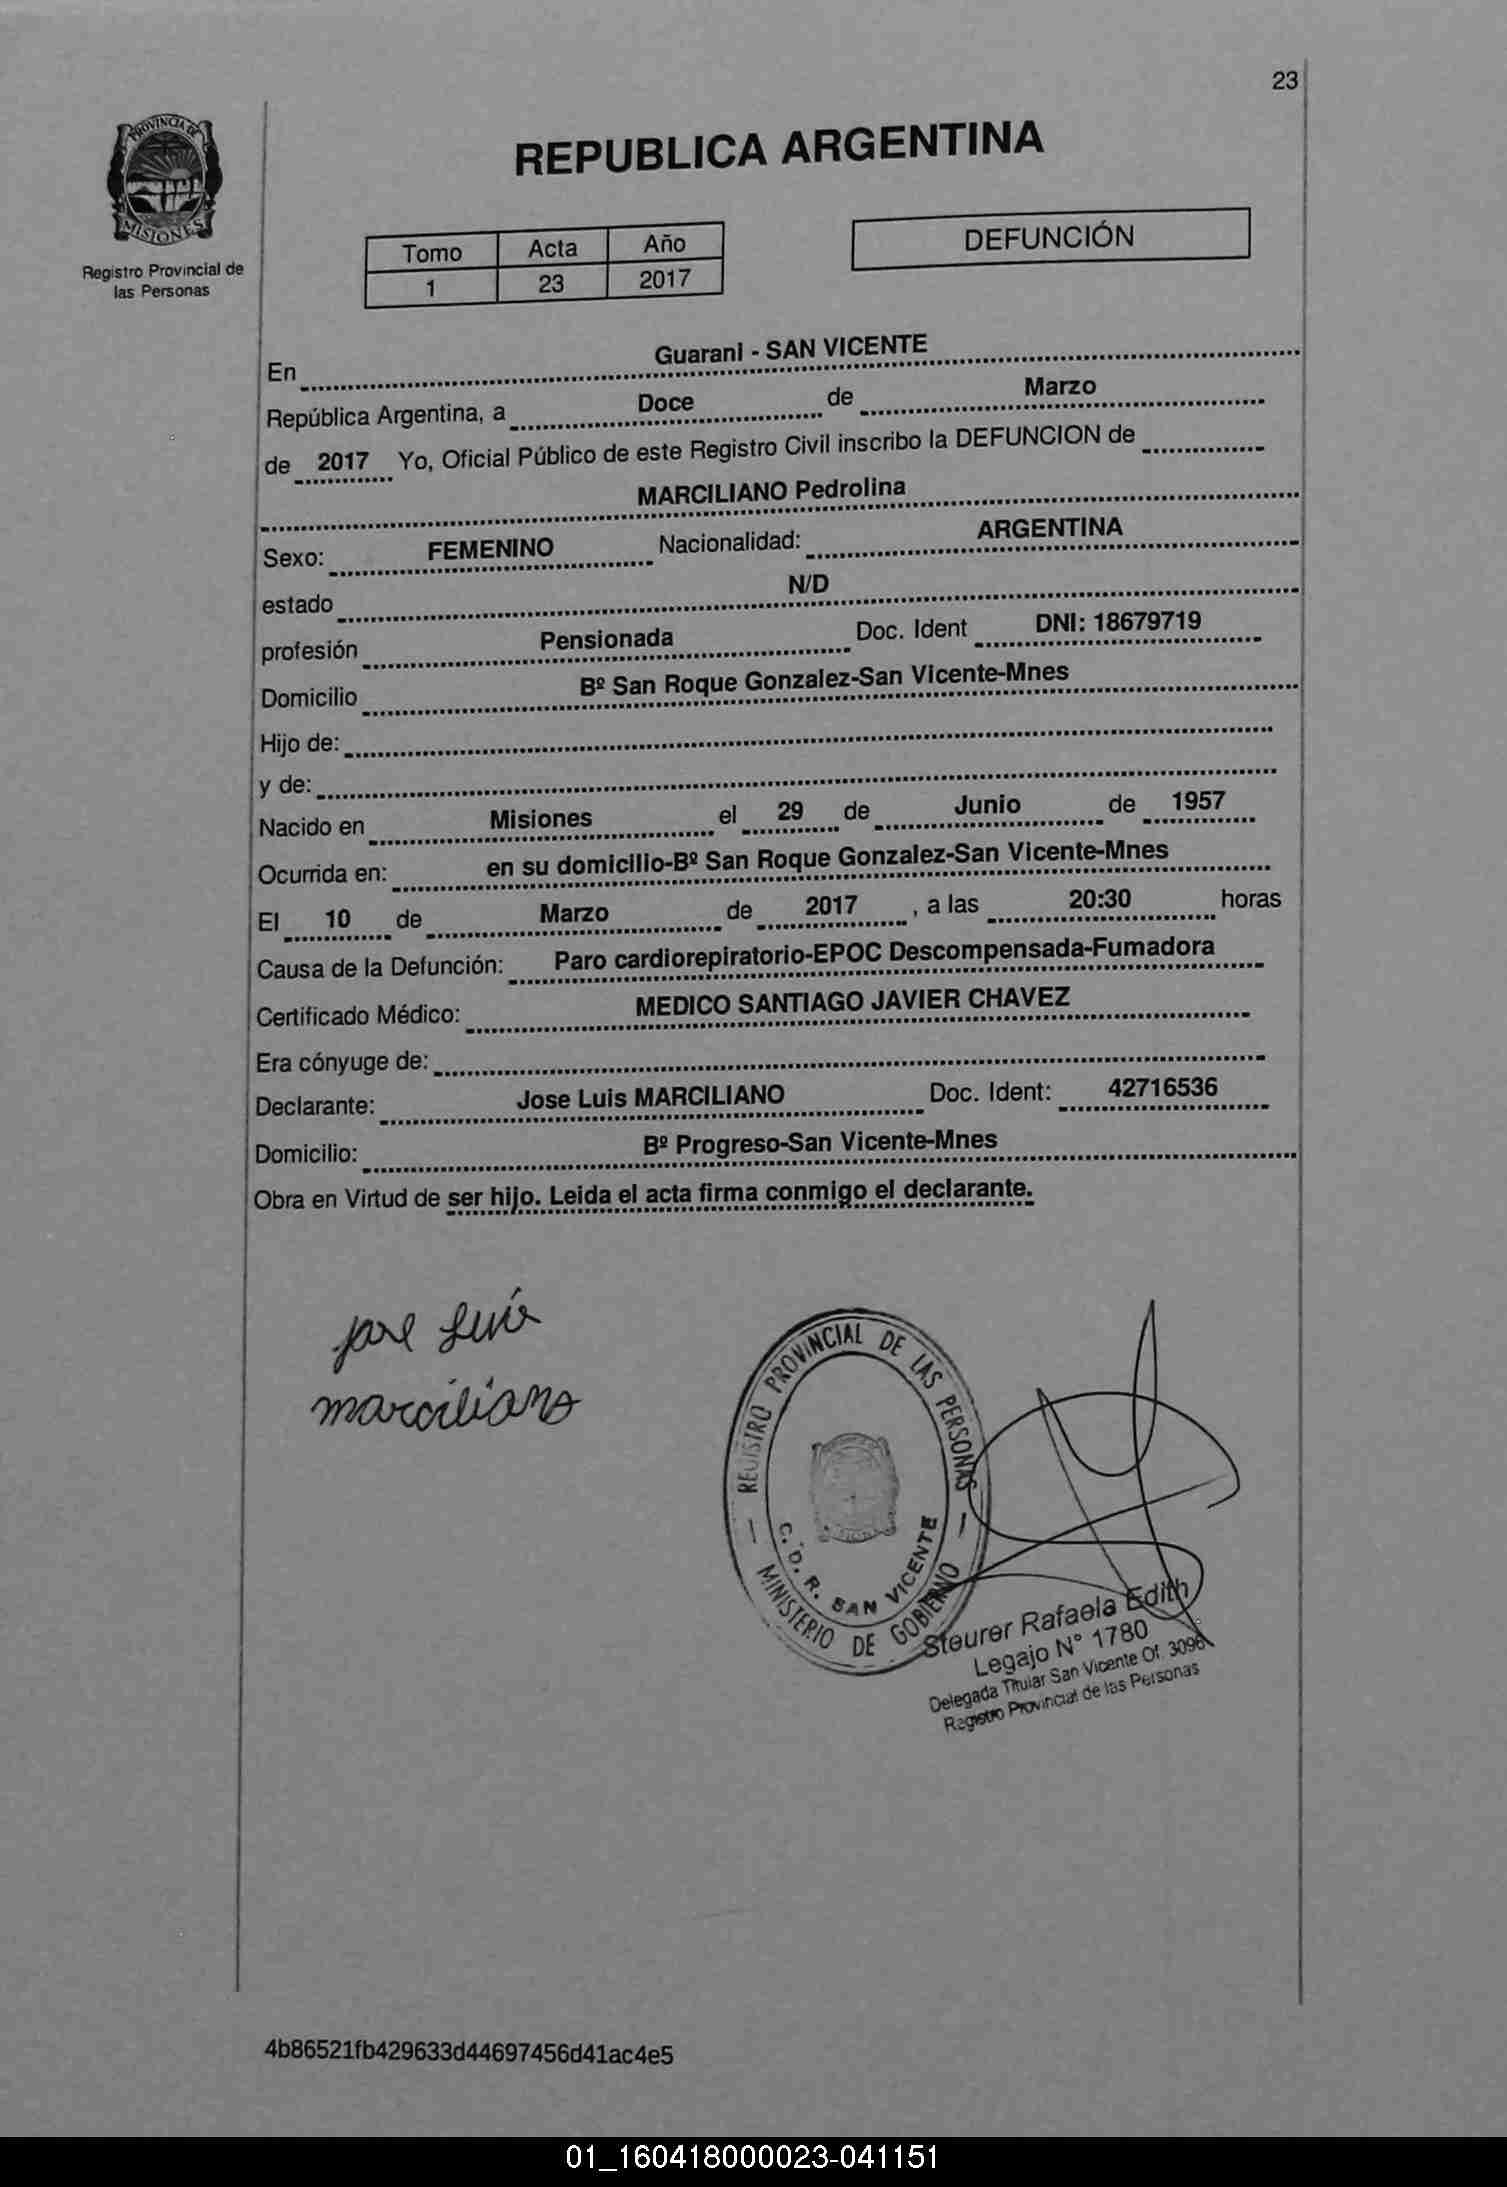 23
PROVINCIA DE
MISIONES
Registro Provincial de
las Personas
REPUBLICA ARGENTINA
Tomo Acta Año
1 23 2017
DEFUNCIÓN
En Guarani - SAN VICENTE
República Argentina, a Doce de Marzo
de 2017 Yo, Oficial Público de este Registro Civil inscribo la DEFUNCION de
MARCILIANO Pedrolina
Sexo: FEMENINO Nacionalidad: ARGENTINA
estado N/D
profesión Pensionada Doc. Ident DNI: 18679719
Domicilio Bº San Roque Gonzalez-San Vicente-Mnes
Hijo de:
y de:
Nacido en Misiones el 29 de Junio de 1957
Ocurrida en: en su domicilio-Bº San Roque Gonzalez-San Vicente-Mnes
El 10 de Marzo de 2017 , a las 20:30 horas
Causa de la Defunción: Paro cardiorepiratorio-EPOC Descompensada-Fumadora
Certificado Médico: MEDICO SANTIAGO JAVIER CHAVEZ
Era cónyuge de:
Declarante: Jose Luis MARCILIANO Doc. Ident: 42716536
Domicilio: Bº Progreso-San Vicente-Mnes
Obra en Virtud de ser hijo. Leida el acta firma conmigo el declarante.
jose Luis
marciliano
REGISTRO PROVINCIAL DE LAS PERSONAS
C. D. R. SAN VICENTE
MINISTERIO DE GOBIERNO
Steurer Rafaela Edith
Legajo N° 1780
Delegada Titular San Vicente Of. 3096
Registro Provincial de las Personas
4b86521fb429633d44697456d41ac4e5
01_160418000023-041151